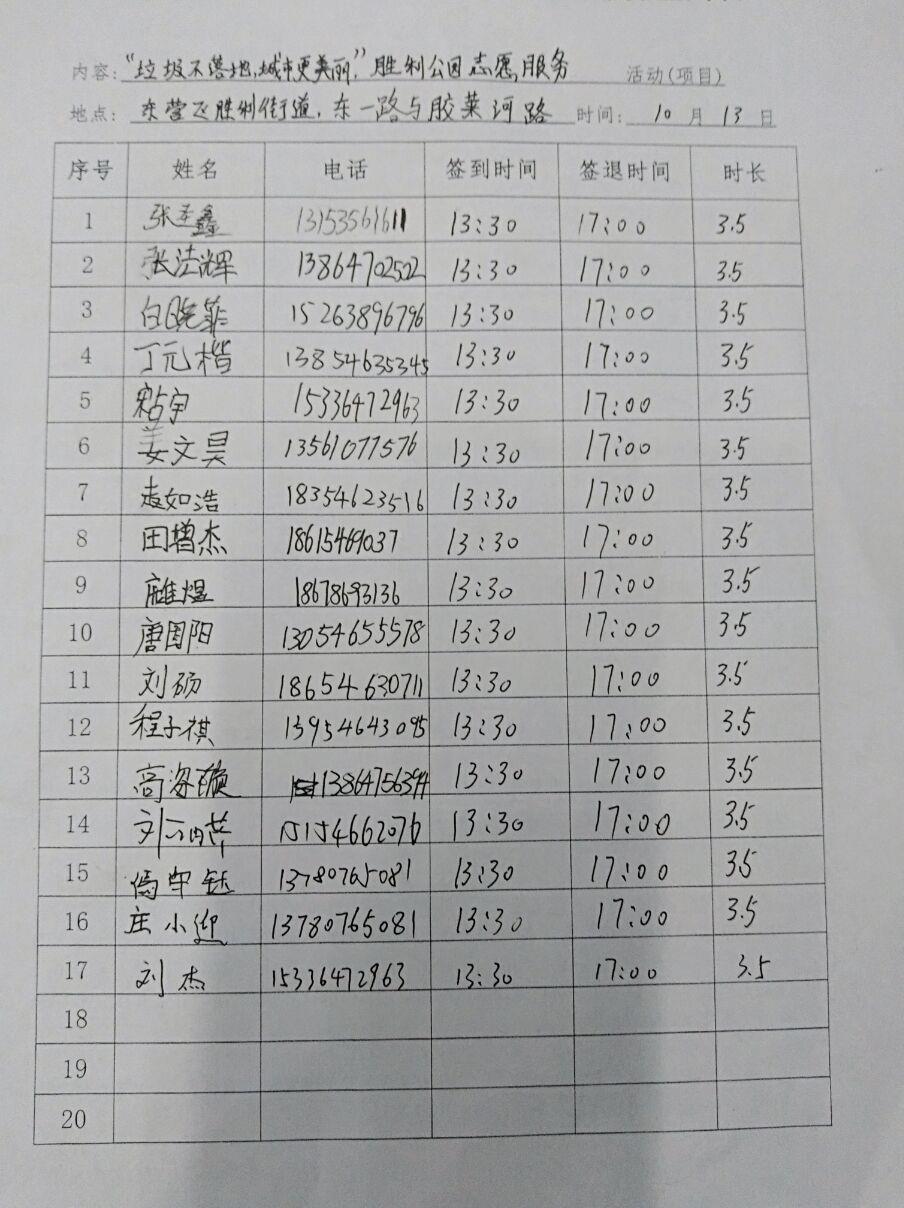 内容:“垃圾不落地,城市更美丽,”胜利公园志愿服务 活动(项目)
地点: 东营区胜利街道,东一路与胶莱河路 时间: 10 月 13 日
序号 姓名 电话 签到时间 签退时间 时长
1 张圣鑫 13153561611 13:30 17:00 3.5
2 张洁辉 13864702502 13:30 17:00 3.5
3 白晓菲 15263896796 13:30 17:00 3.5
4 丁元楷 13854635345 13:30 17:00 3.5
5 15336472963 13:30 17:00 3.5
6 姜文昊 13561077576 13:30 17:00 3.5
7 袁如浩 18354623516 13:30 17:00 3.5
8 田增杰 18615469037 13:30 17:00 3.5
9 18678693136 13:30 17:00 3.5
10 唐国阳 13054655578 13:30 17:00 3.5
11 刘砺 18654630711 13:30 17:00 3.5
12 程子祺 13954643095 13:30 17:00 3.5
13 13864756394 13:30 17:00 3.5
14 15154662076 13:30 17:00 3.5
15 13780765081 13:30 17:00 3.5
16 庄小迎 13780765081 13:30 17:00 3.5
17 刘杰 15336472963 13:30 17:00 3.5
18
19
20